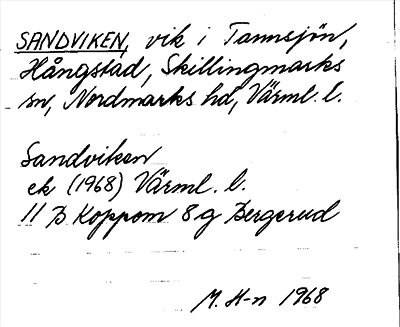 SANDVIKEN, vik i Tannsjön,
Hångstad, Skillingmarks
sn, Nordmarks hd, Värml. l.
Sandviken
ek (1968) Värml. l.
11 B Koppom 8 g Bergerud
M. H-n 1968